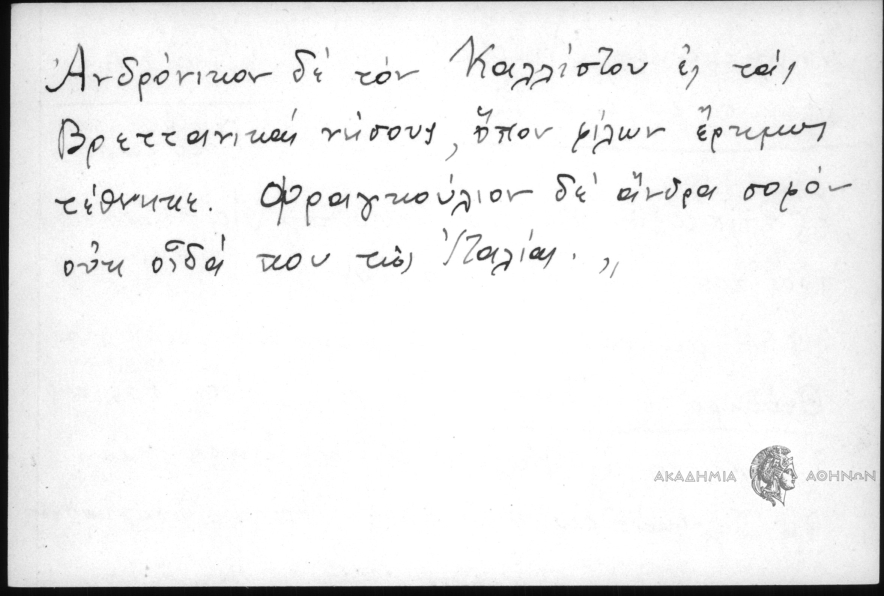 Ἀνδρόνικον δὲ τὸν Καλλίστου ἐς τὰς
Βρεττανικὰς νήσους, ὅπου φίλων ἔρημος
τέθνηκε. Φραγκούλιον δὲ ἄνδρα σοφόν
οὐκ οἶδά που τῆς Ἰταλίας. "
ΑΚΑΔΗΜΙΑ ΑΘΗΝΩΝ